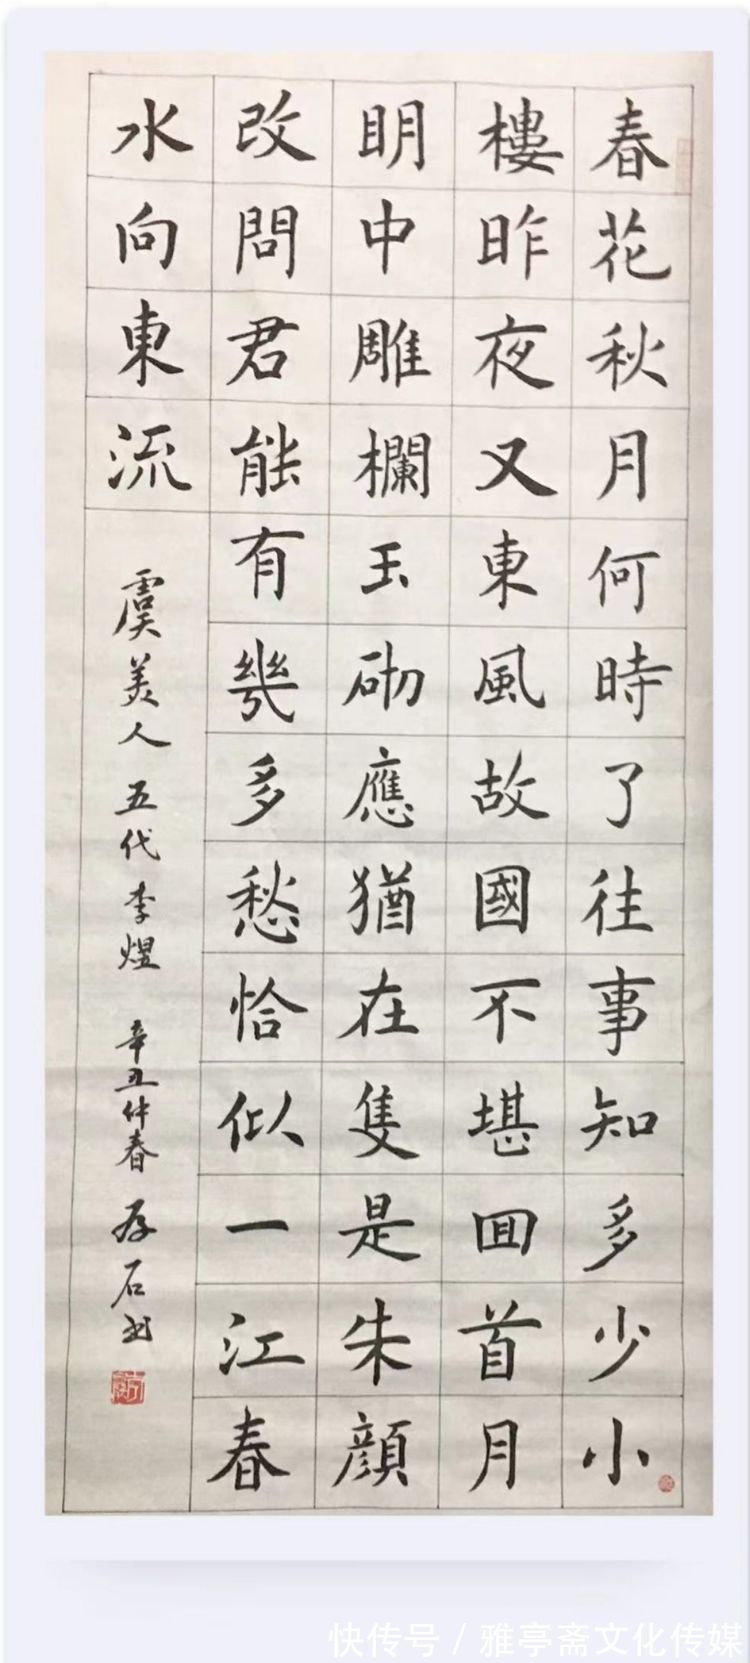 春花秋月何時了往事知多少小
樓昨夜又東風故國不堪囬首月
眀中雕欄玉砌應猶在隻是朱顔
改問君能有幾多愁恰似一江春
水向東流
虞美人 五代 李煜 辛丑仲春 存石书
快传号 / 雅亭斋文化传媒